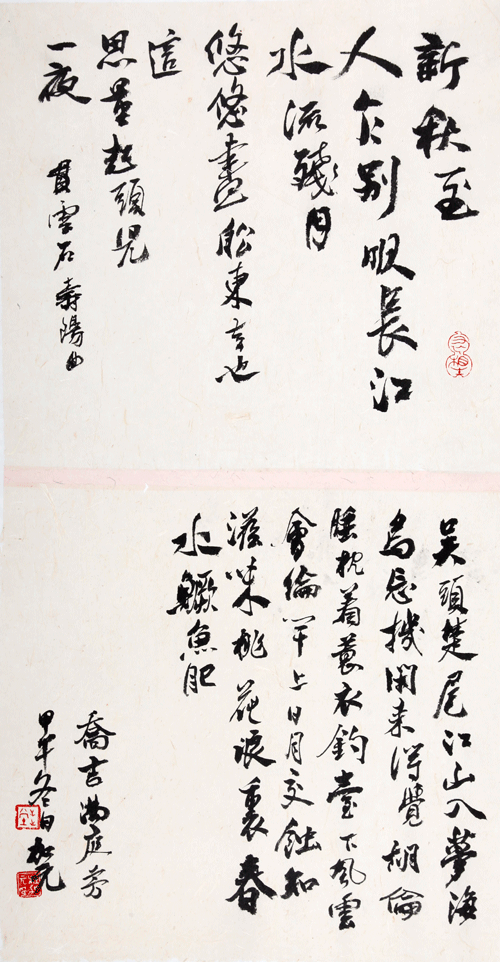 新秋至
人乍别順長江
水流殘月
悠悠畫船東去也
這
思量起頭兒
一夜
貫雲石壽陽曲
吴頭楚尾江山入夢海
鳥忘機閑來得覺胡倫
睡枕着蓑衣釣臺下風雲
會綸竿上日月交蝕知
滋味桃花浪裏春
水鱖魚肥
喬吉滿庭芳
甲午冬日